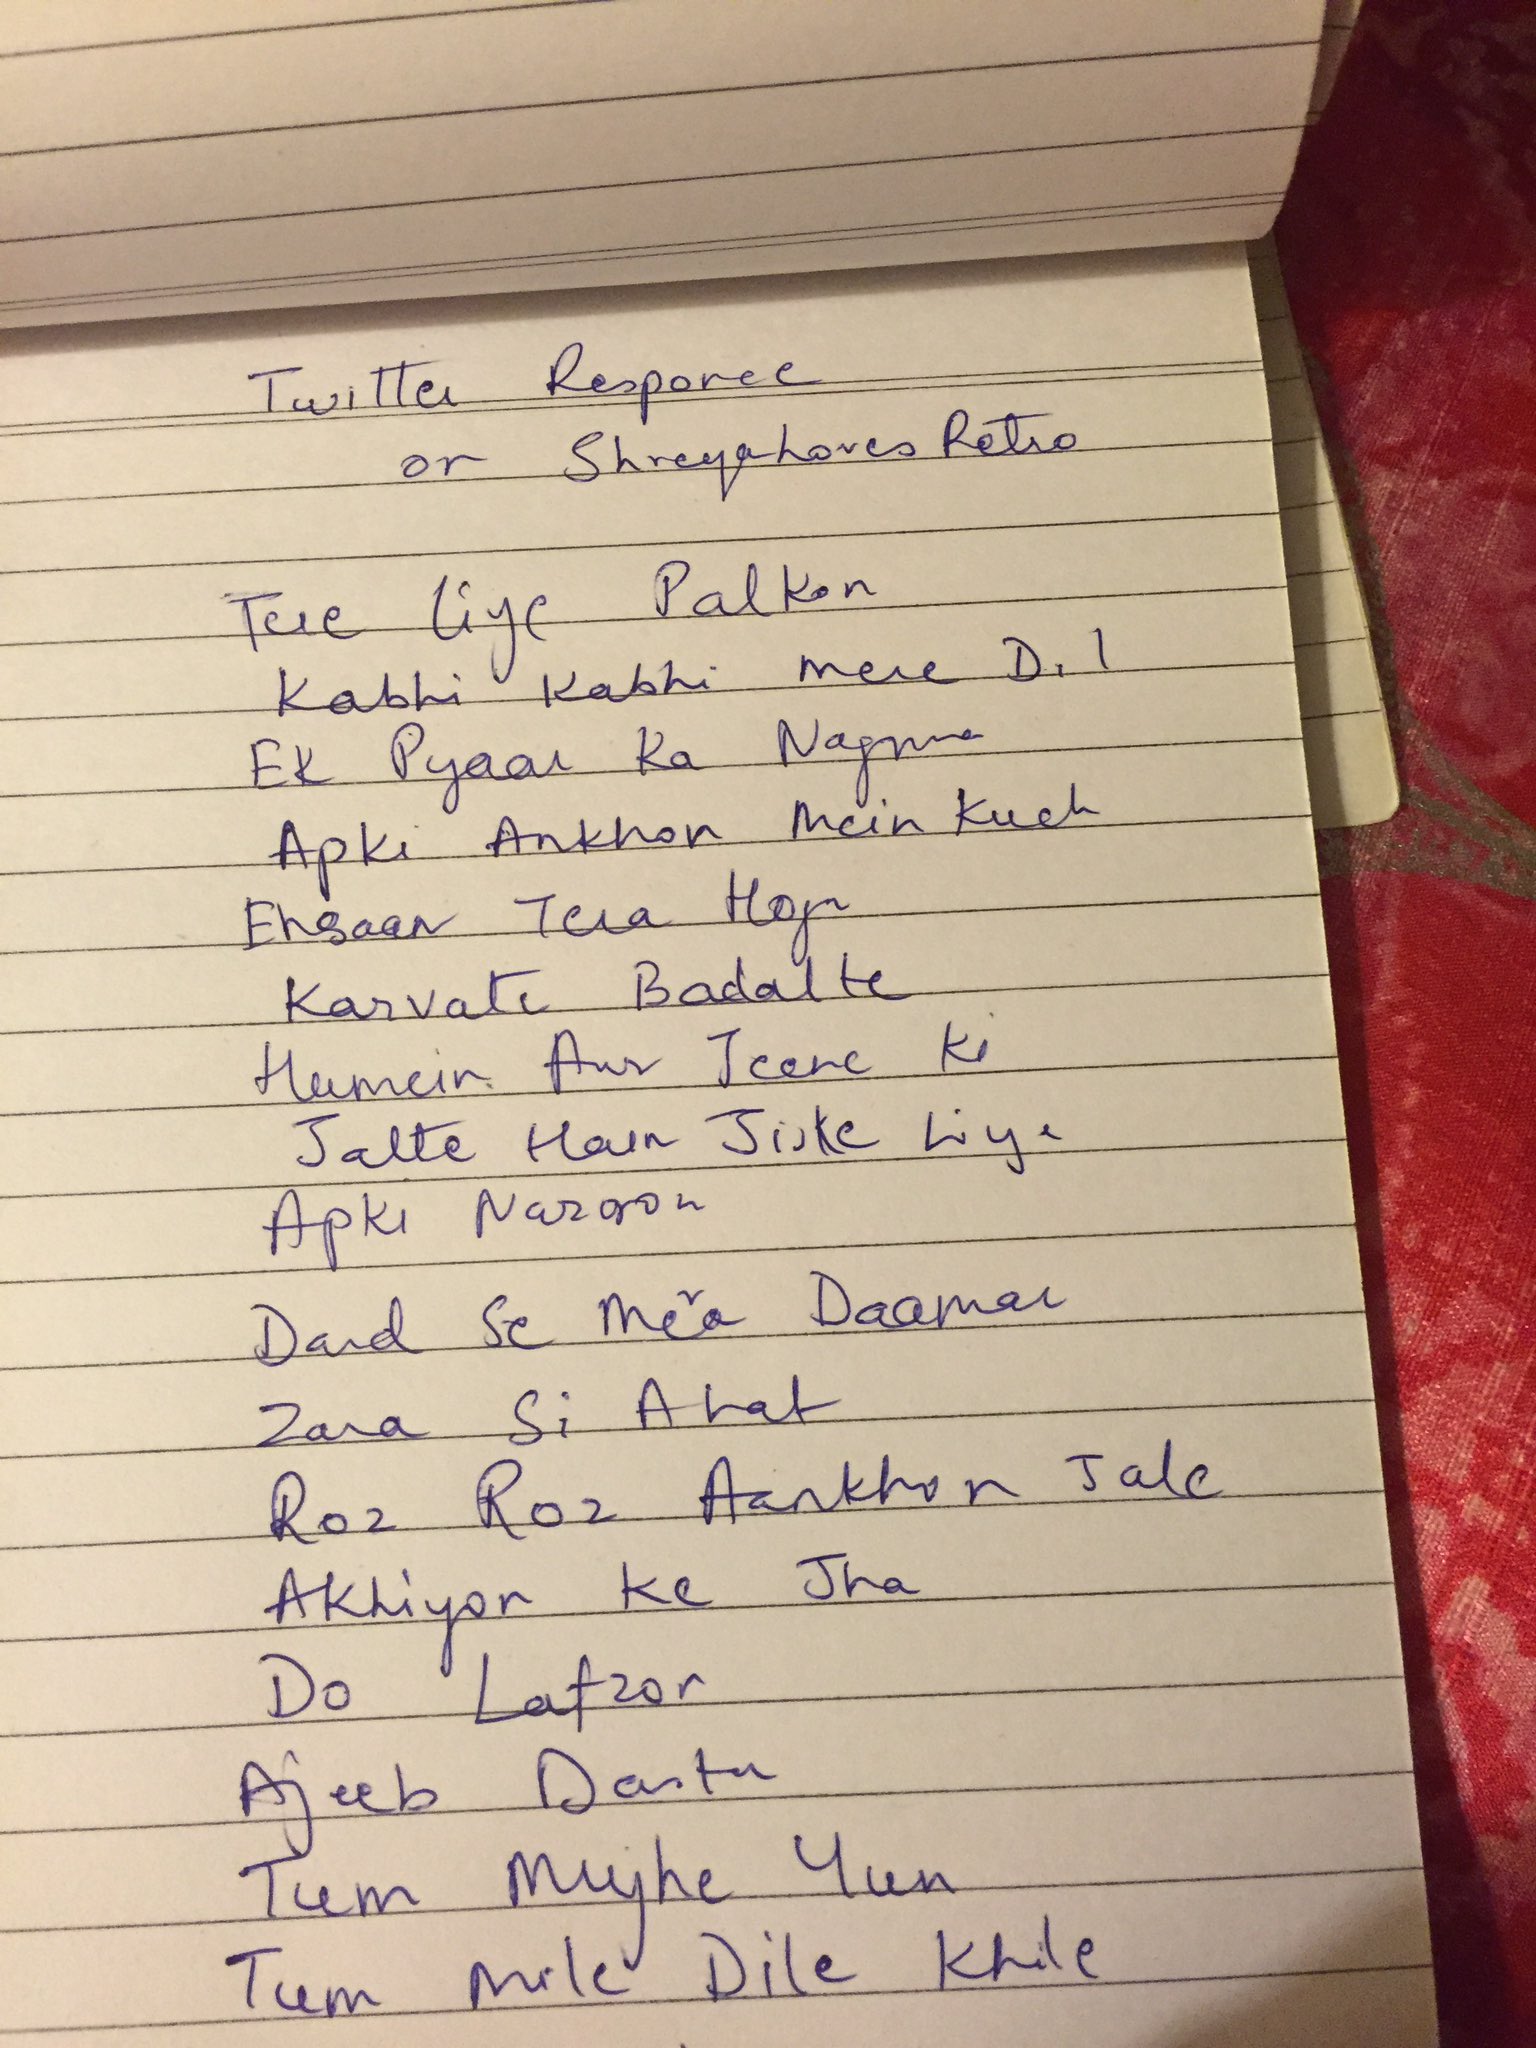 Twitter Response
on ShreyaLovesRetro
Tere Liye Palkon
Kabhi Kabhi Mere Dil
Ek Pyaar Ka Nagma
Apki Ankhon Mein Kuch
Ehsaan Tera Hoga
Karvate Badalte
Humein Aur Jeene Ki
Jalte Hain Jiske Liye
Apki Nazron
Dard Se Mera Daaman
Zara Si Ahat
Roz Roz Aankhon Tale
Akhiyon Ke Jha
Do Lafzon
Ajeeb Dastn
Tum Mujhe Yun
Tum Mile Dile Khile